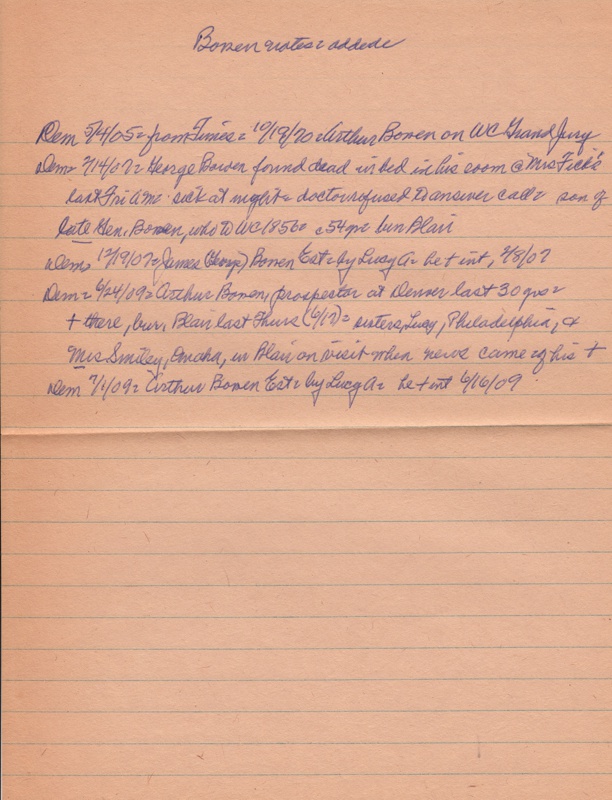 Bowen notes = addede
Dem 5/4/05 = from Times = 10/19/70 = Arthur Bowen on WC Grand Jury
Dem = 2/14/07 = George Bowen found dead in bed in his room @ Mrs Fick's
last Fri AM = sick at night = doctor refused to answer call = son of
late Gen. Bowen, who to WC 1856 = c54 yr = bur Blair
Dem 12/19/07 = James (George) Bowen Est = by Lucy A = he + int, 2/8/07
Dem = 6/24/09 = Arthur Bowen, prospector at Denver last 30 yrs =
+ there, bur. Blair last Thurs (6/17) = sisters, Lucy, Philadelphia, &
Mrs Smiley, Omaha, in Blair on visit when news came of his +
Dem 7/1/09 = Arthur Bowen Est = by Lucy A = he + int 6/16/09